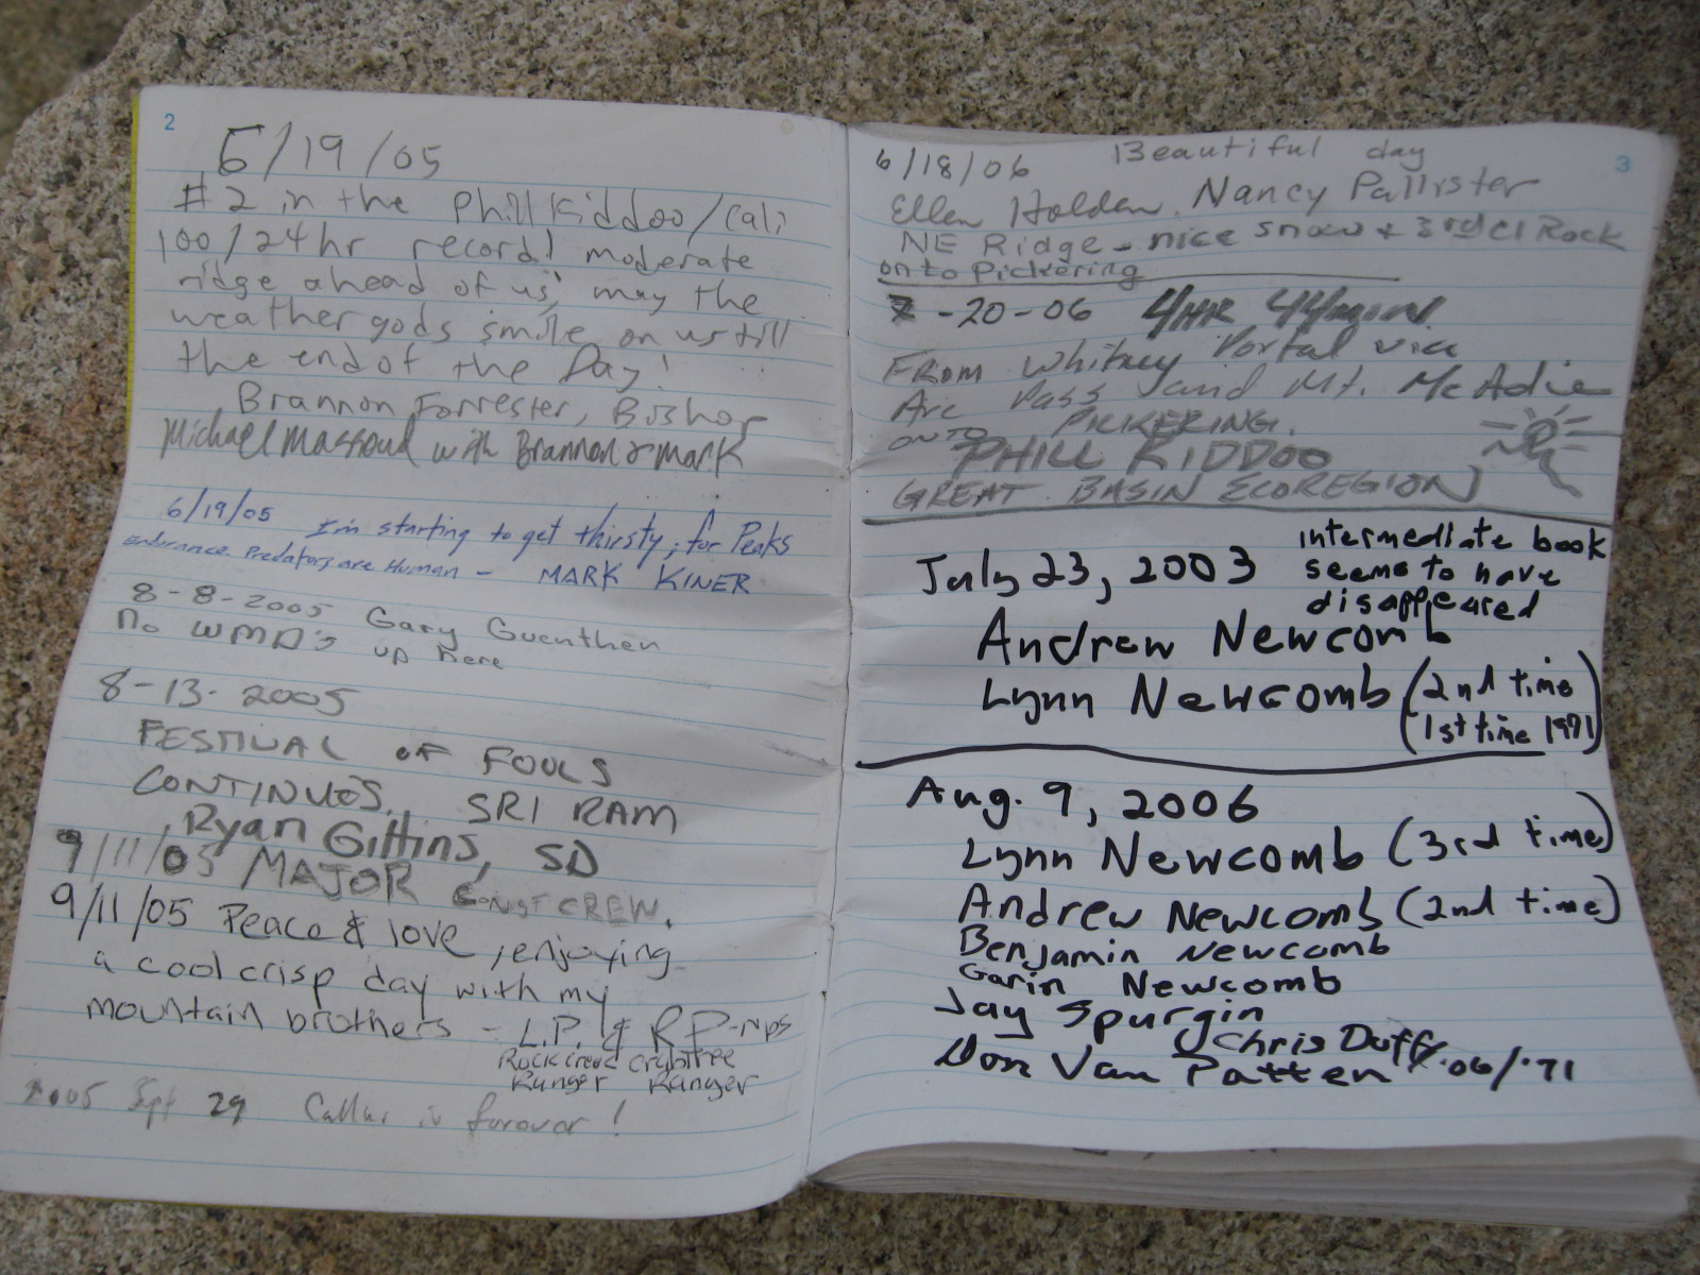 2
6/19/05
#2 in the Phill Kiddoo/Cali
100/24hr record! moderate
ridge ahead of us, may the
weather gods smile on us till
the end of the Day!
Brannon Forrester, Bishop
Michael Massoud with Brannon & Mark
6/19/05 I'm starting to get thirsty; for Peaks
Endurance Predators are Human - MARK KINER
8-8-2005 Gary Guenther
No WMD's up here
8-13-2005
FESTIVAL OF FOOLS
CONTINUES, SRI RAM
Ryan Gittins, SD
9/11/05 MAJOR CREW.
9/11/05 Peace & love, enjoying
a cool crisp day with my
mountain brothers - L.P. & RP-NPS
Rock creek Crabtree
Ranger Ranger
2005 Spt 29 is forever!
3
6/18/06 Beautiful day
Ellen Holden, Nancy Pallister
NE Ridge - nice snow + 3rd Cl Rock
onto Pickering
7-20-06 4HR 44min.
FROM Whitney Portal via
Arc Pass and Mt. McAdie
ONTO PICKERING.
PHILL KIDDOO
GREAT BASIN ECOREGION
July 23, 2003
intermediate book
seems to have
disappeared
Andrew Newcomb
Lynn Newcomb (2nd time
1st time 1971)
Aug. 9, 2006
Lynn Newcomb (3rd time)
Andrew Newcomb (2nd time)
Benjamin Newcomb
Garin Newcomb
Jay Spurgin
Chris Duffy
Don Van Patten '06/'71